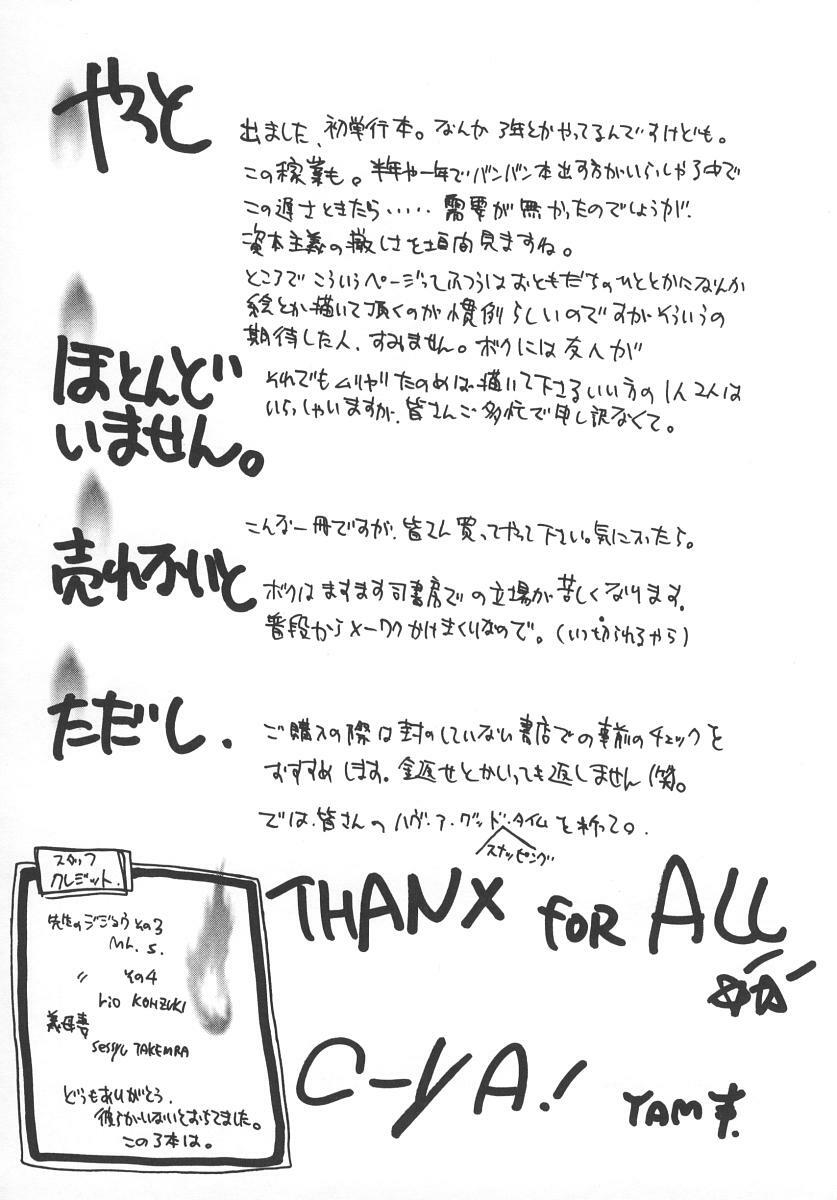 やっと
出ました、初単行本。なんか3年とかやってるんですけども。
この稼業も。半年や一年でバンバン本出す方がいらっしゃる中で
この遅さときたら・・・・・需要が無かったのでしょうが、
資本主義の厳しさを垣間見ますね。
ところでこういうページってふつうはおともだちのひととかになんか
絵とか描いて頂くのが慣例らしいのですがそういうの
期待した人、すみません。ボクには友人が
ほとんど
いません。
それでもムリヤリたのめば描いて下さるいい方の1人2人は
いらっしゃいますが、皆さんご多忙で申し訳なくて。
こんな一冊ですが、皆さん買ってやって下さい。気に入ったら。
売れないと
ボクはますます司書房での立場が苦しくなります。
普段からメーワクかけまくりなので。(いつ切られるやら)
ただし、
ご購入の際は封のしていない書店での事前のチェックを
おすすめします。金返せとかいっても返しません(笑)。
では、皆さんのハヴ・ア・グッド・タイムを祈って。
スナッピング
THANX FOR ALL
C-YA!
YAM
スタッフ
クレジット.
その3
Mr. S.
〃 その4
rio KOHZUKI
義母妻
sessyu TAKEMRA
どうもありがとう.
彼らがいないとおちてました。
この3本は。